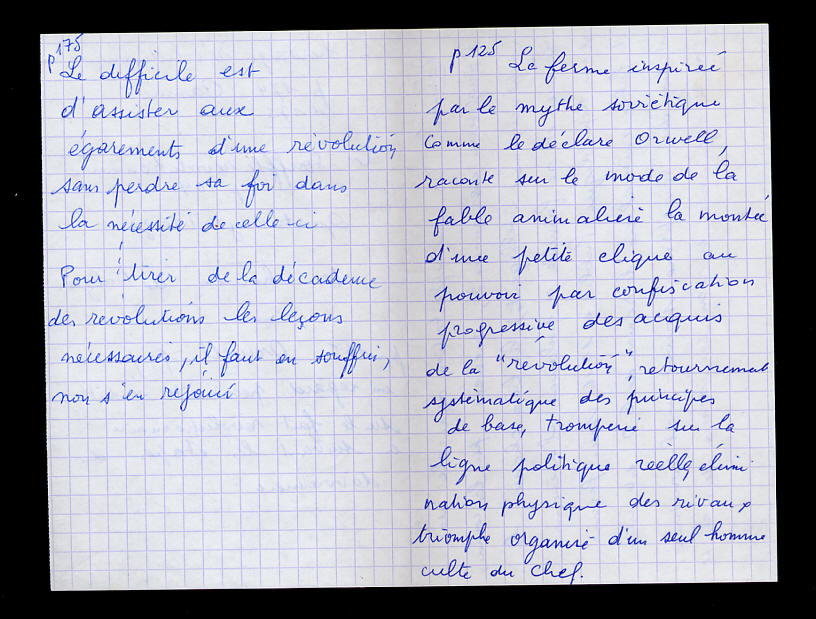 p 175
Le difficile est
d'assister aux
égarements d'une révolution,
sans perdre sa foi dans
la nécessité de celle-ci
Pour tirer de la décadence
des révolutions les leçons
nécessaires, il faut en souffrir,
non s'en rejouir
p 125 La ferme inspirée
par le mythe soviétique
comme le déclare Orwell,
raconte sur le mode de la
fable animalière la montée
d'une petite clique au
pouvoir par confiscation
progressive des acquis
de la "révolution", retournement
systématique des principes
de base, tromperie sur la
ligne politique réelle, élimi
nation physique des rivaux
triomphe organisé d'un seul homme
culte du chef.